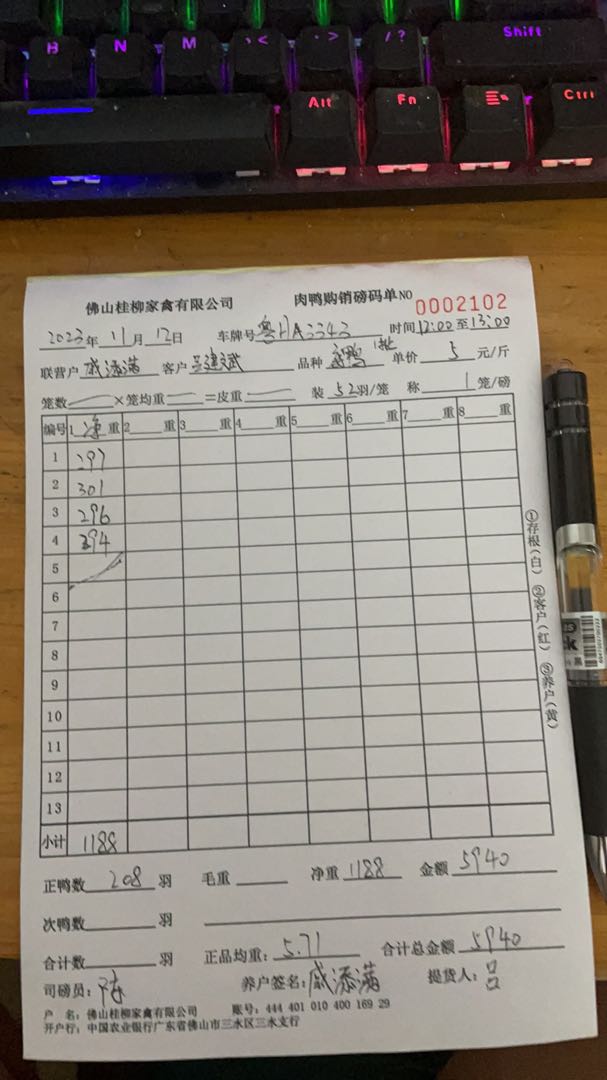 B N M , < . > / ? Shift
Alt Fn Ctrl
佛山桂柳家禽有限公司 肉鸭购销磅码单NO 0002102
2023年 11月 12日 车牌号 粤HA3343 时间12:00至13:00
联营户 戚添满 客户 建斌 品种 鸭 单价 5 元/斤
笼数 ×笼均重 =皮重 装 52羽/笼 称 1笼/磅
编号 1 净重 2 重 3 重 4 重 5 重 6 重 7 重 8 重
1 297
2 301
3 296
4 294
5
6
7
8
9
10
11
12
13
小计 1188
正鸭数 208 羽 毛重 净重 1188 金额 5940
次鸭数 羽
合计数 羽 正品均重: 5.71 合计总金额 5940
司磅员: 养户签名: 戚添满 提货人: 吕
户 名: 佛山桂柳家禽有限公司 账号: 444 401 010 400 169 29
开户行: 中国农业银行广东省佛山市三水区三水支行
①存根(白) ②客户(红) ③养户(黄)
ck
黑